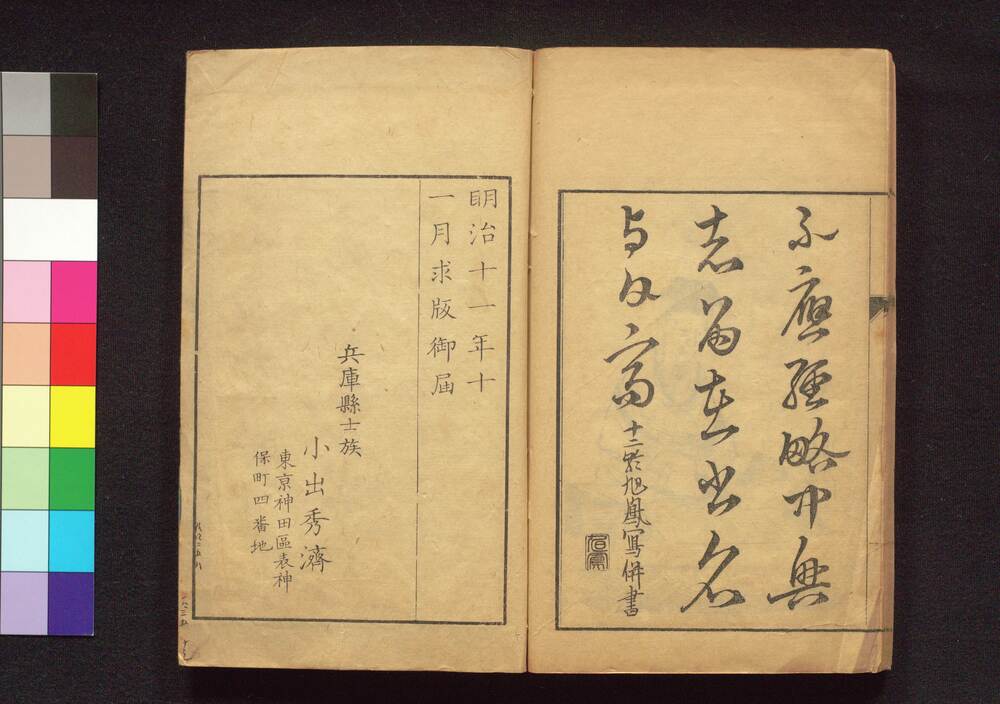 不應經略中興
志留在名
与高
十二旭鳳寫併書
明治十一年十
一月求版御届
兵庫縣士族
小出秀濟
東亰神田區表神
保町四番地